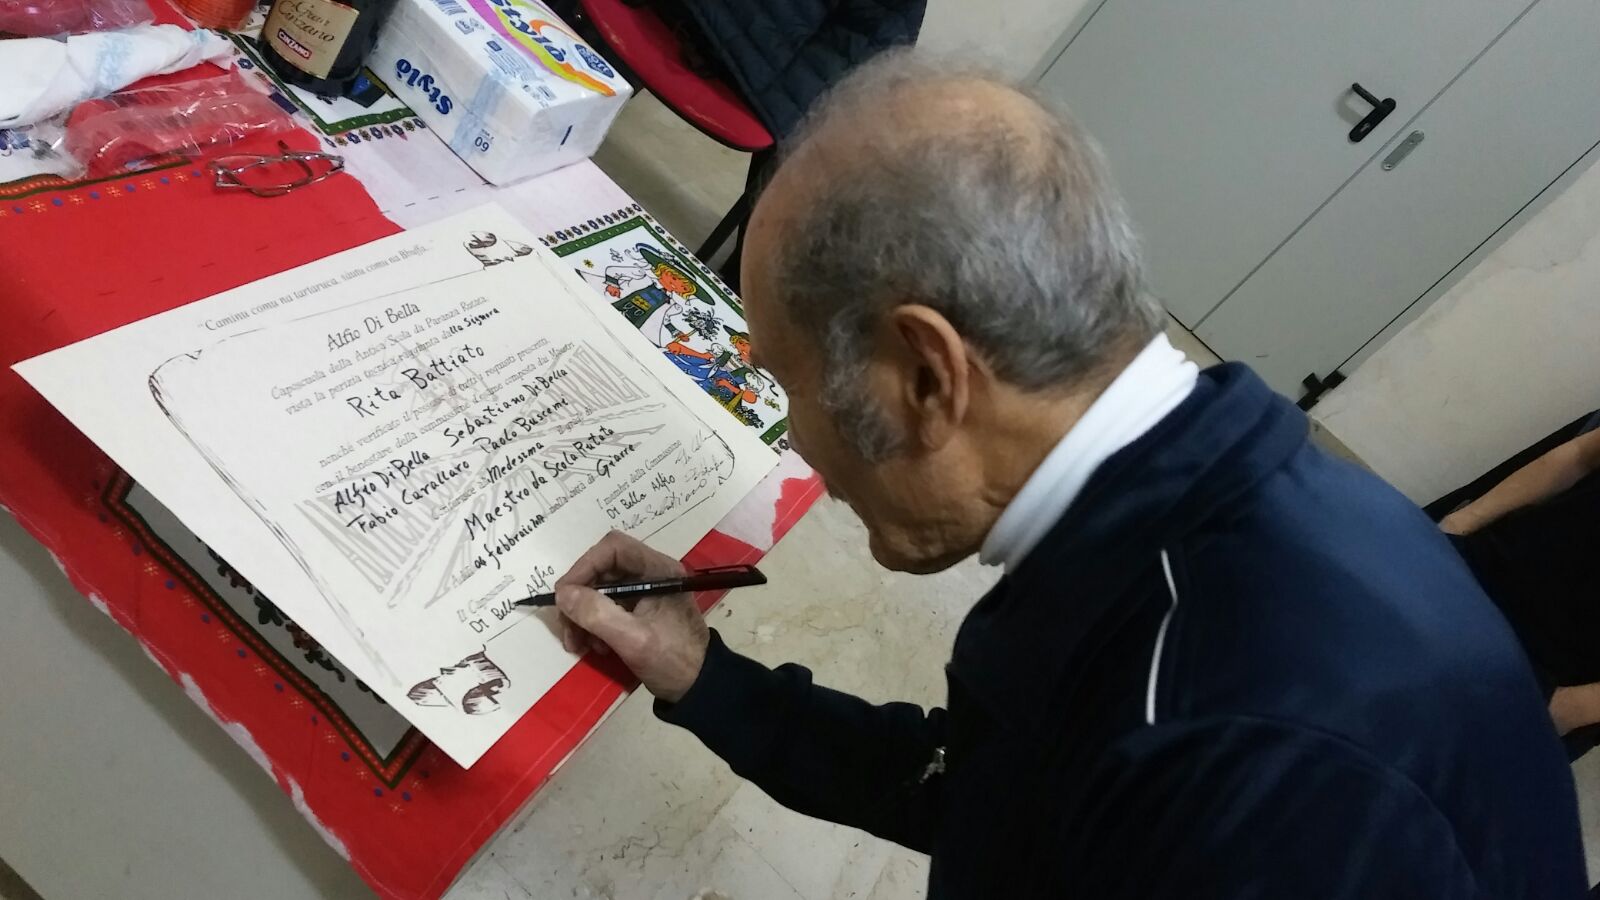 Gran
Cinzano
CINZANO
Stylò
Stylò
60
"Caminu comu na tartaruca, sùunu comu na Bbuffa."
Alfio Di Bella
Caposcuola della Antica Scola da Paranza Rutata,
vista la perizia tecnica raggiunta dalla Signora
Rita Battiato
nonché verificato il possesso di tutti i requisiti prescritti,
con il benestare della commissione d'esame composta dai Maestri
Alfio Di Bella Sebastiano Di Bella
Fabio Cavallaro Paolo Buscemi
Conferisce al Medesima
Maestro da Scola Rutata
nella città di Giarre
febbraio
I membri della Commissione
Di Bella Alfio
Il Caposcuola
Di Bella Alfio